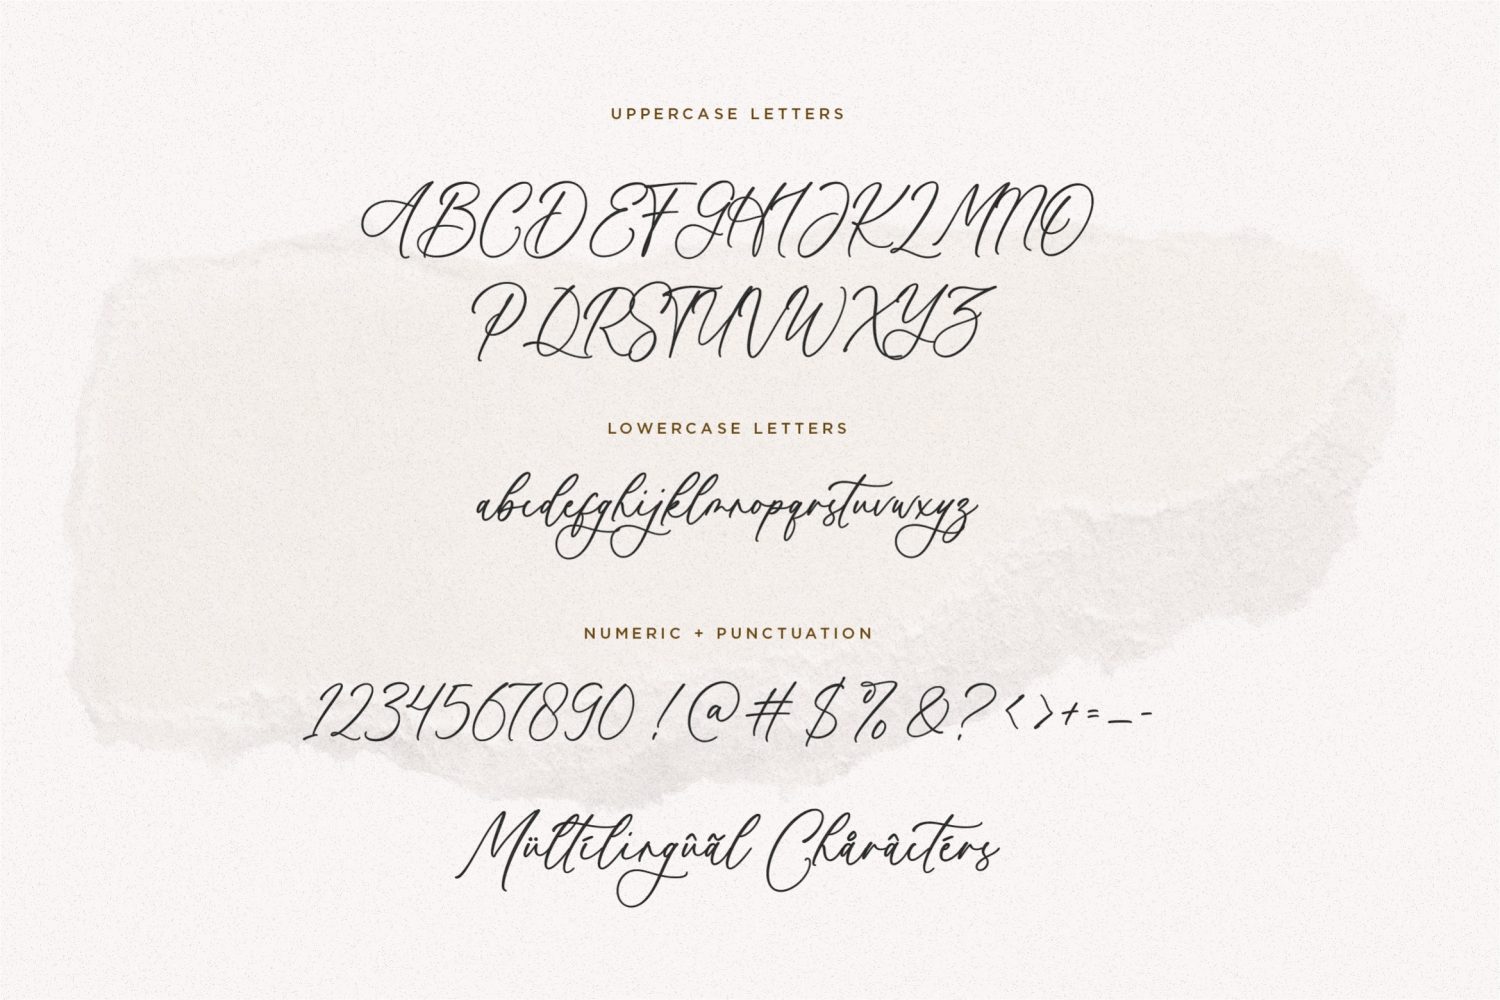 UPPERCASE LETTERS
ABCDEFGHIJKLMNO
PQRSTUVWXYZ
LOWERCASE LETTERS
abcdefghijklmnopqrstuvwxyz
NUMERIC + PUNCTUATION
1234567890!@#$%&?<>+=_-
Mültílingûãl Chårâctérs